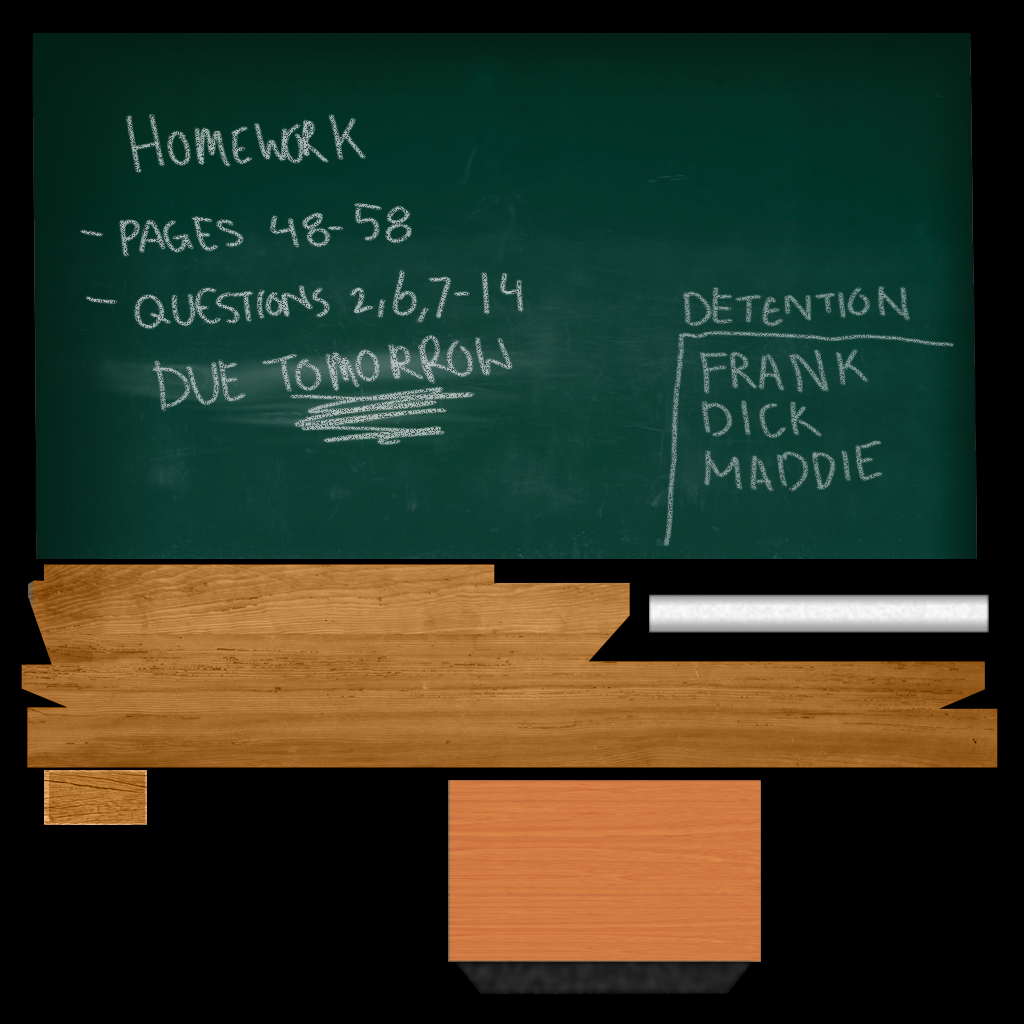 HOMEWORK
- PAGES 48-58
- QUESTIONS 2,6,7-14
DUE TOMORROW
DETENTION
FRANK
DICK
MADDIE